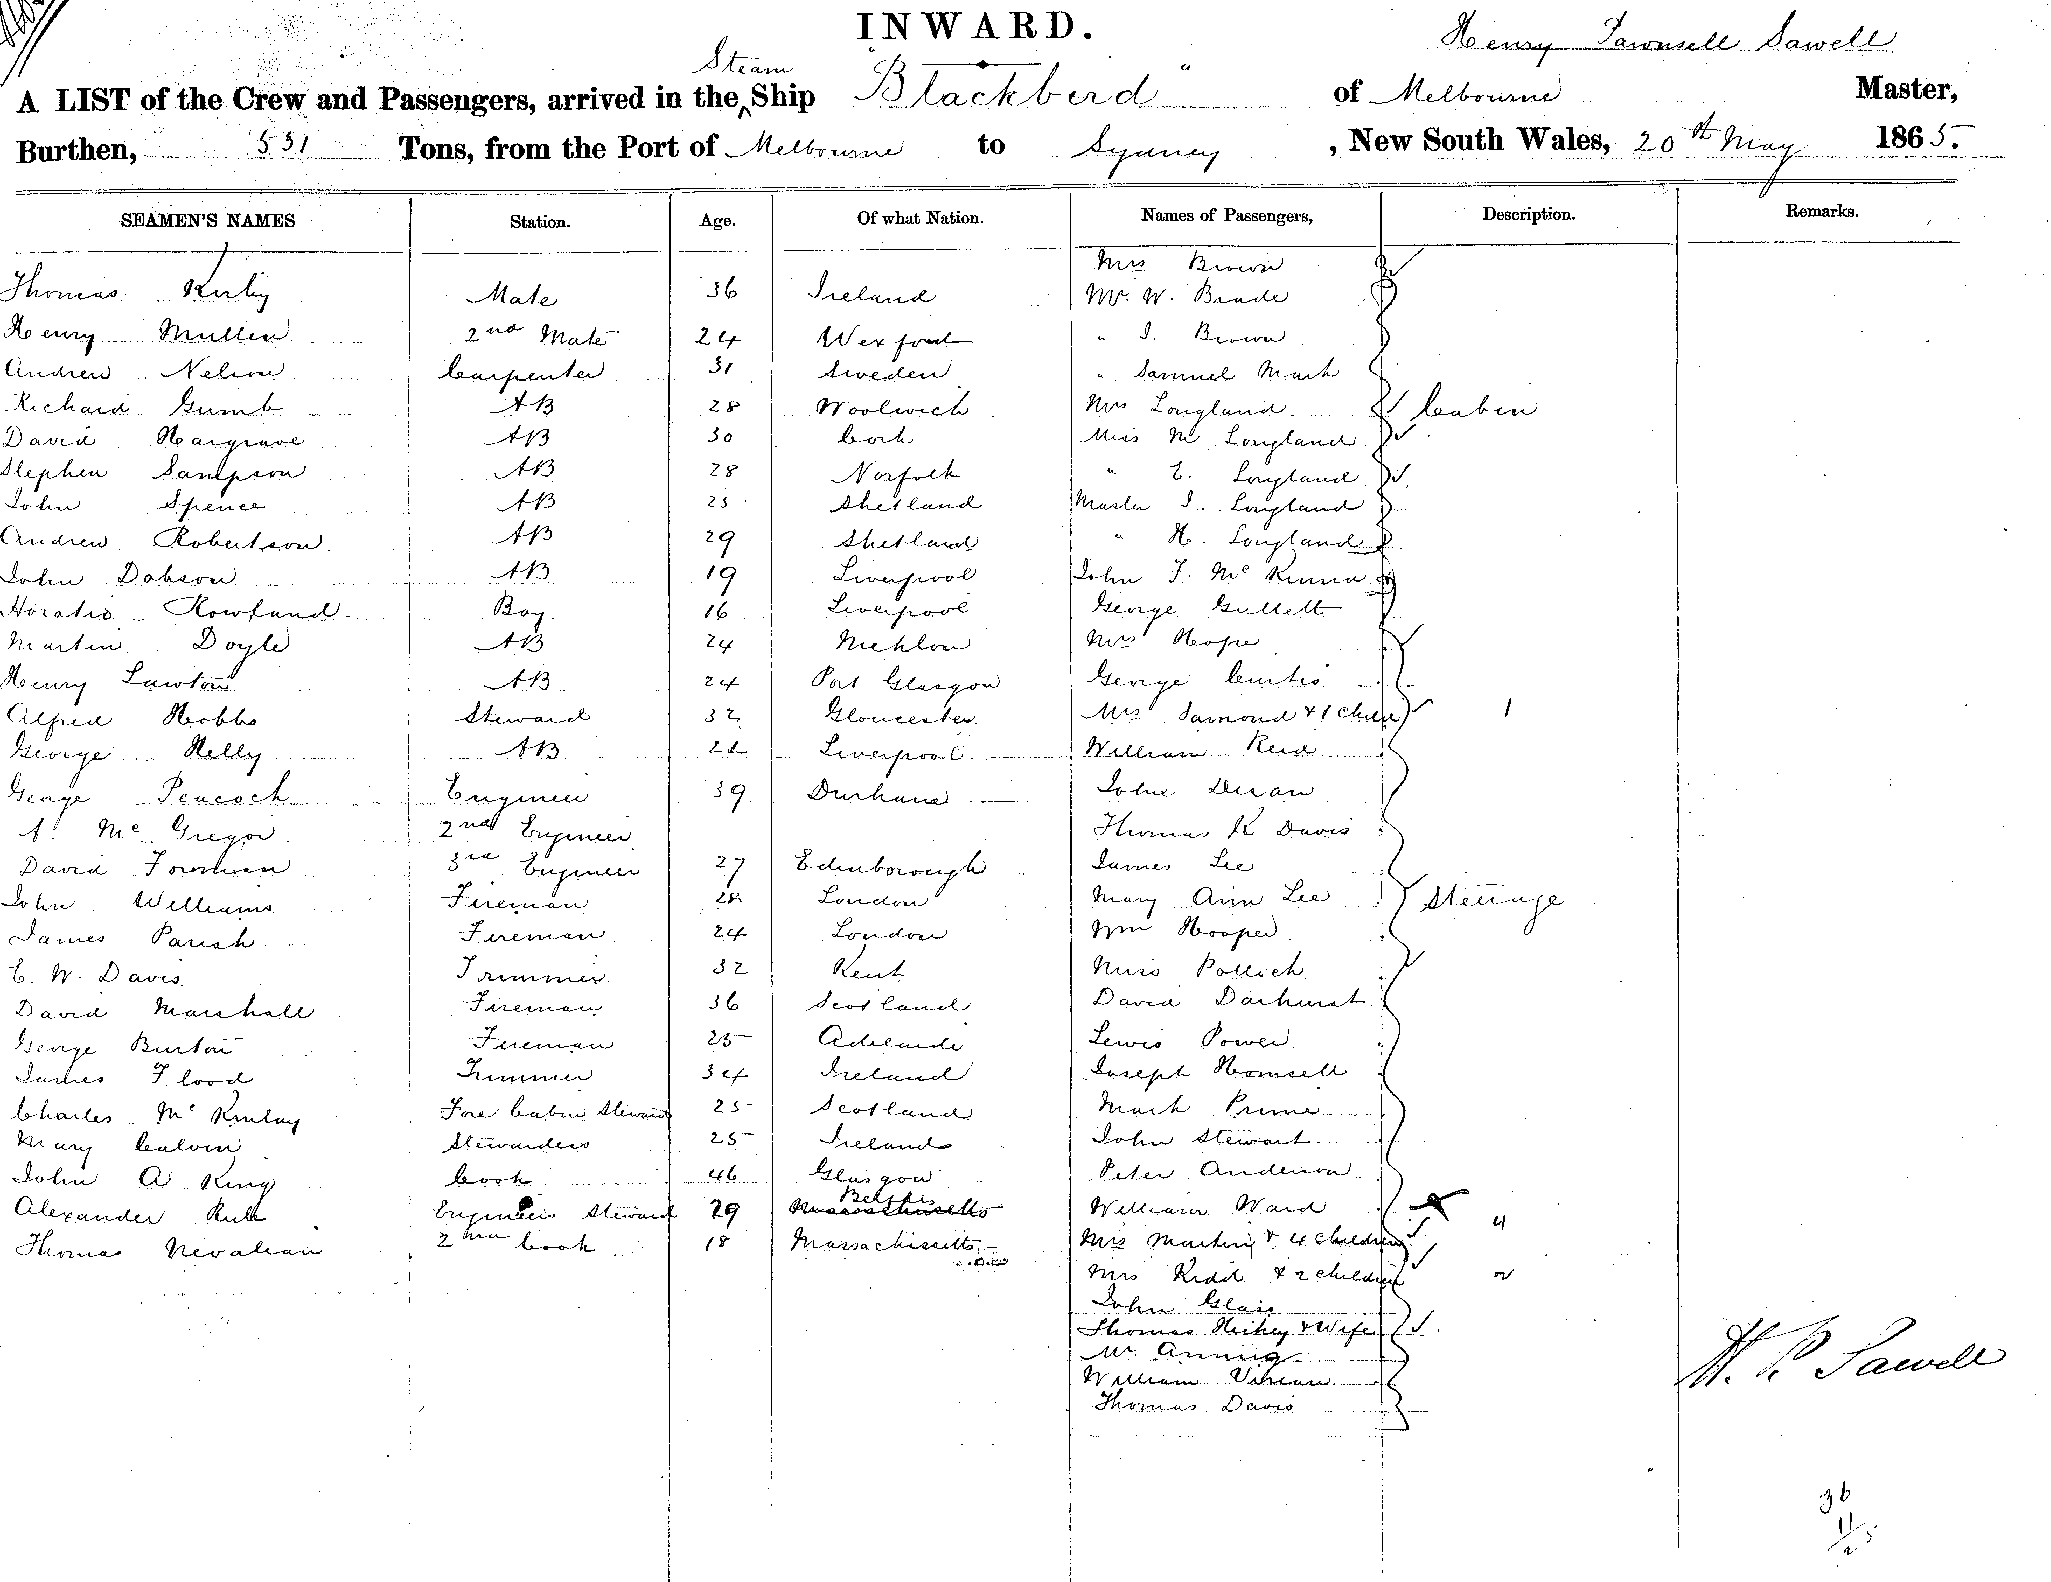 INWARD.
Henry Townsell Sawell
Steam
A LIST of the Crew and Passengers, arrived in the Ship "Blackberd" of Melbourne Master,
Burthen, 531 Tons, from the Port of Melbourne to Sydney, New South Wales, 20th May 1865.
SEAMEN'S NAMES Station. Age. Of what Nation. Names of Passengers, Description. Remarks.
Mrs Brown
Thomas Kerby Mate 36 Ireland Mr. W. Brade
Henry Mullen 2nd Mate 24 Wexford " J. Brown
Andrew Nelson Carpenter 31 Sweden " Samuel Mark
Richard Gumb AB 28 Woolwich Mrs Longland Caben
David Hargrave AB 30 Cork Miss M Longland
Stephen Sampson AB 28 Norfolk " E. Longland
John Spence AB 25 Shetland Master J. Longland
Andrew Robertson AB 29 Shetland " H. Longland
John Dobson AB 19 Liverpool John T. Mc
Horatio Rowland Boy 16 Liverpool George Gillett
Martin Doyle AB 24 Mrs Hope
Henry Lawton AB 24 Port Glasgow George Curtis
Alfred Hobbs Steward 32 Gloucester Mrs & 1 Child 1
George Kelly AB 22 Liverpool William Reid
George Peacock Engineer 39 Durham John
A. Mc Gregor 2nd Engineer Thomas K Davis
David Foreman 3rd Engineer 27 Edinborough James Lee
John Williams Fireman 28 London Mary Ann Lee Steerage
James Parish Fireman 24 London Wm Hooper
E. W. Davis Trimmer 32 Kent Miss Pollock
David Marshall Fireman 36 Scotland David Darhurst
George Burton Fireman 25 Adelaide Lewis Power
James Flood Trimmer 34 Ireland Joseph Homsell
Charles Mc Kinlay Fore Cabin Steward 25 Scotland Mark Prime
Mary Calvin Stewardess 25 Ireland John Stewart
John A King Cook 46 Glasgow Peter Anderson
Alexander Engineers Steward 29 William Ward
Thomas Nevalean 2nd Cook 18 Massachissetts Mrs Martin & 4 Children 4
Mrs Kidd & 2 Children 2
John Glass
Thomas Hickey & Wife
Mr Anning
William Vivian
Thomas Davis
H. T. Sawell
36